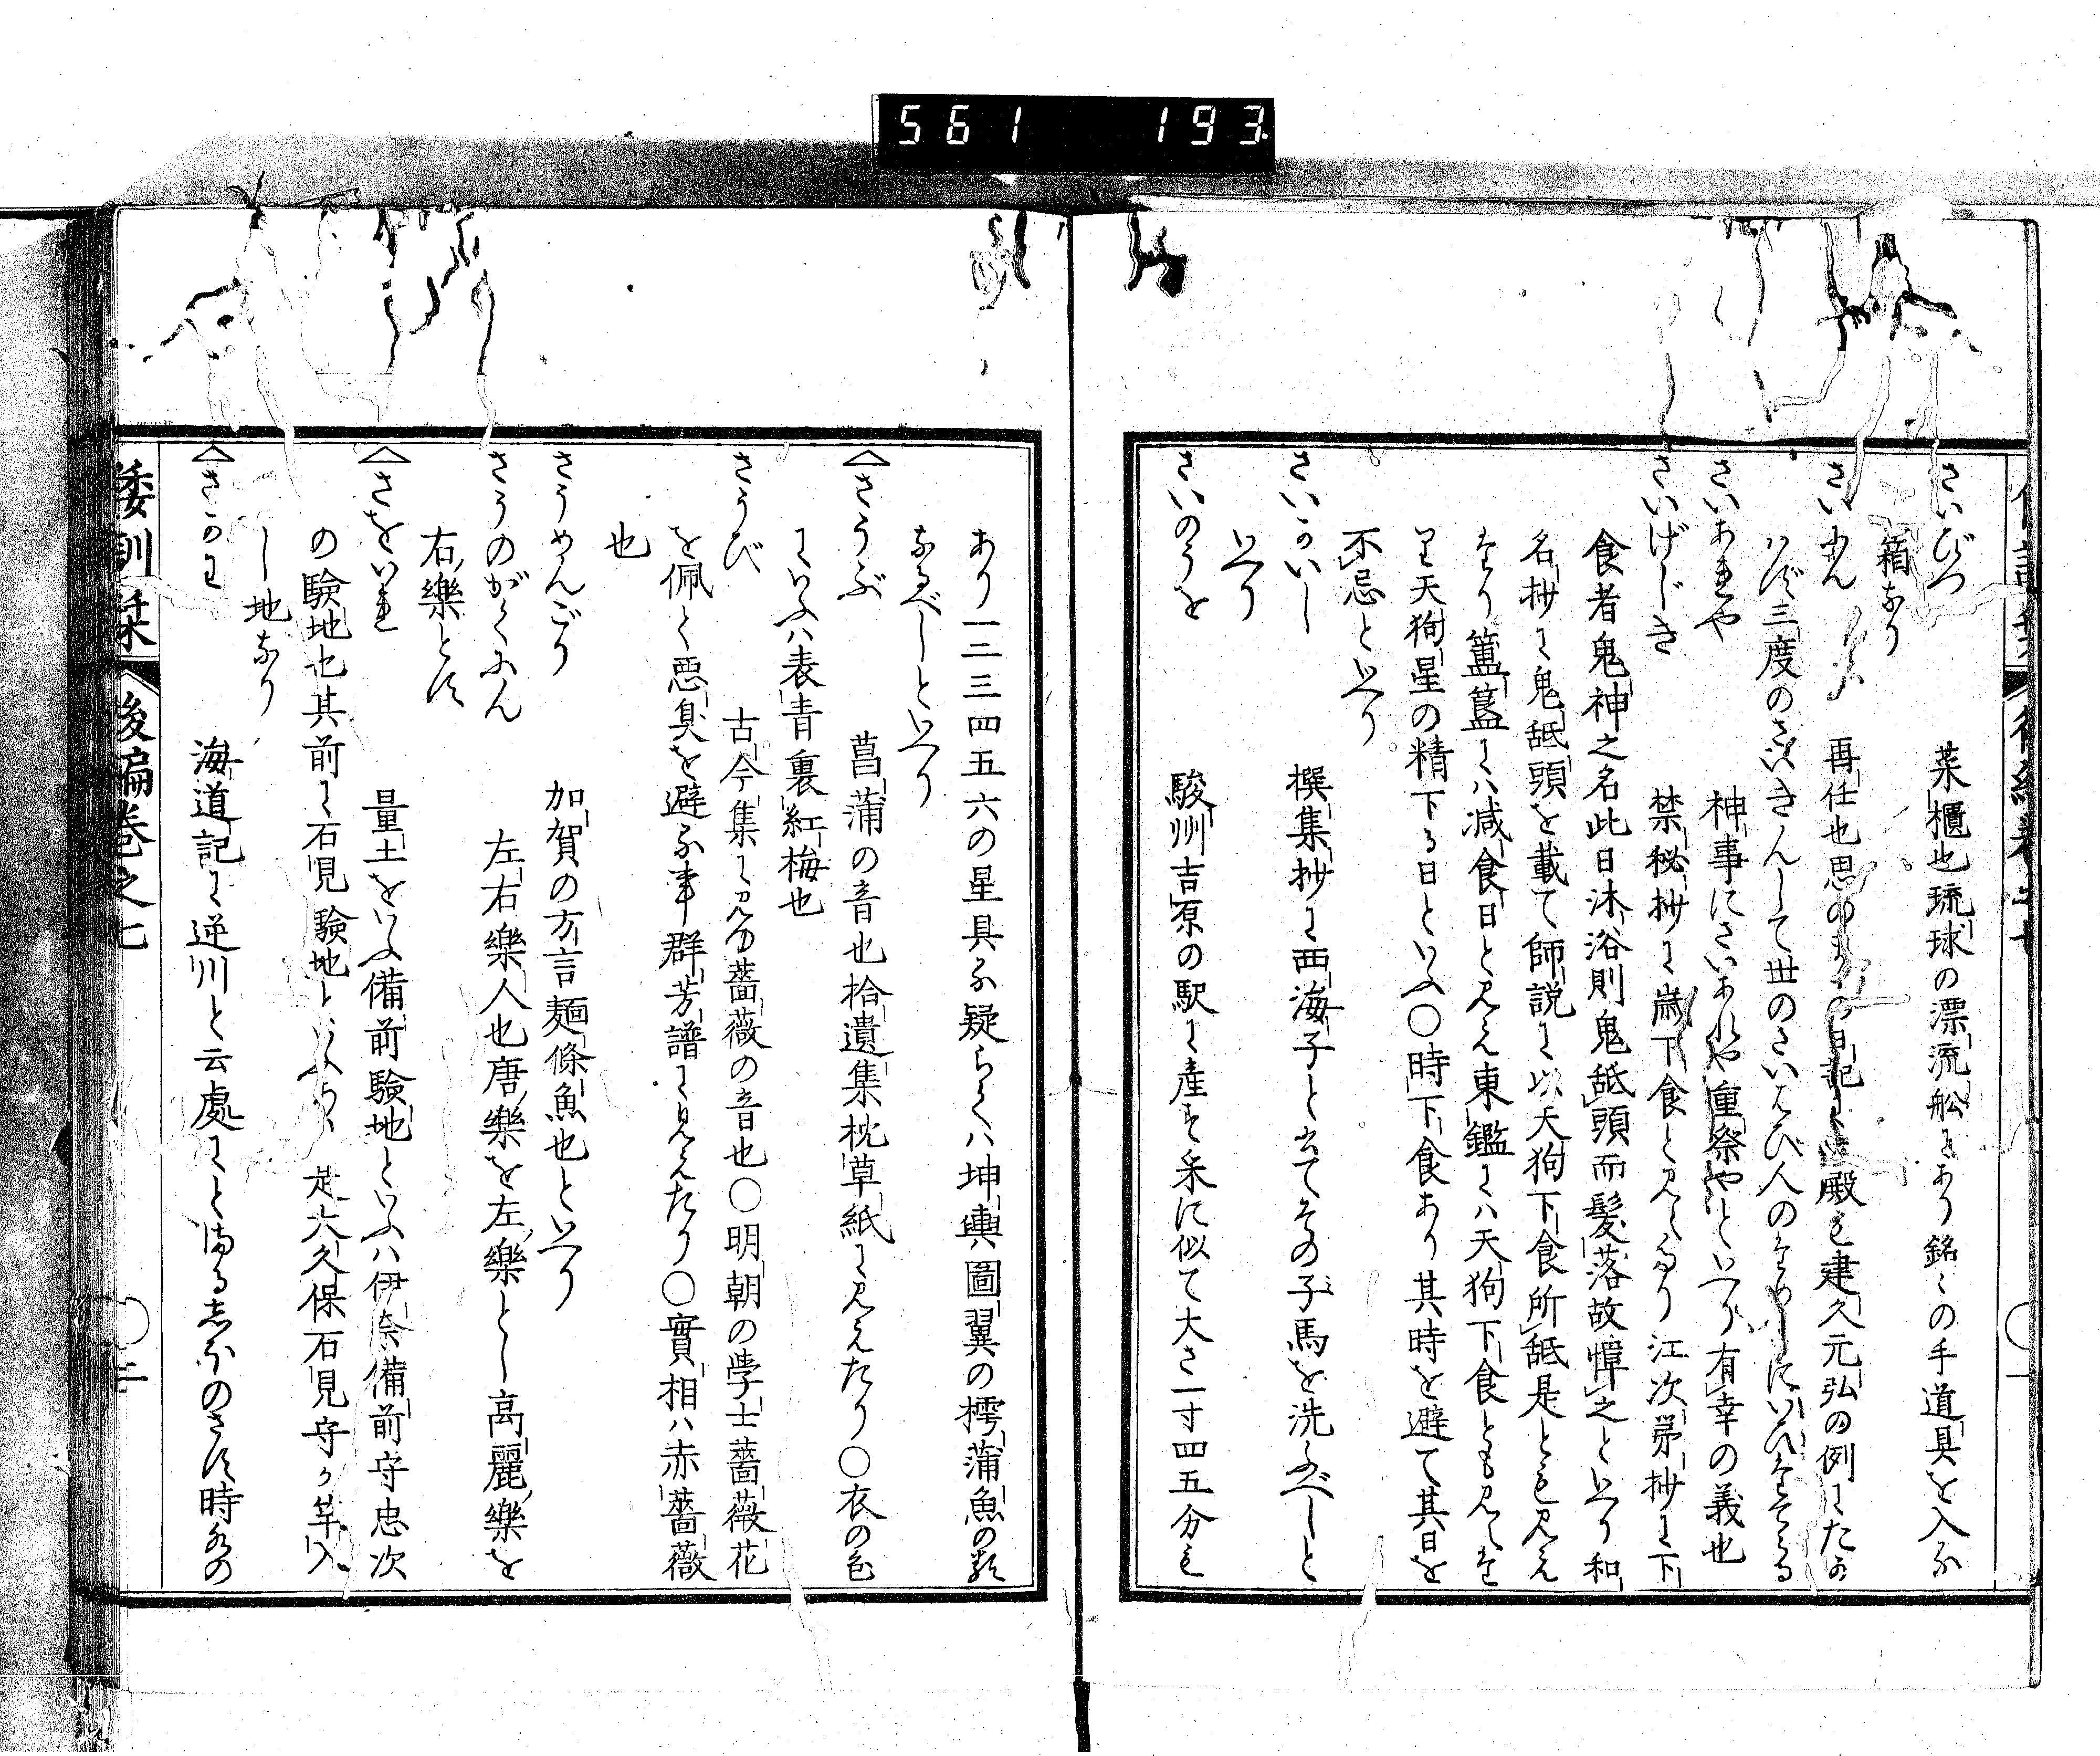 561 193
さいびつ 菜櫃也琉球の漂流舩にあり銘々の手道具を入る
箱なり
さいにん 再任也思の日記に殿も建久元弘の例にたか
はず三度のさいきんして世のさいはひ人のためしに
さいあれや 神事にさいあれや重祭やといへり有幸の義也
さいげじき 禁秘抄に歳下食と見えたり江次第抄に下
食者鬼神之名此日沐浴則鬼舐頭而髪落故憚之といへり和
名抄に鬼舐頭を載て師説に以天狗下食所舐是とも見え
たり簠簋には減食日と見え東鑑には天狗下食とも見えた
り天狗星の精下る日といふ○時下食あり其時を避て其日を
不忌といへり
さいかいし 撰集抄に西海子と出てその子馬を洗ふべしと
いへり
さいのうを 駿州吉原の駅に産す釆に似て大さ一寸四五分も
あり一二三四五六の星具る疑らくは坤輿圖翼の樗蒲魚の類
なるべしといへり
さうぶ 菖蒲の音也拾遺集枕草紙に見えたり○衣の色
にいふは表青裏紅梅也
さうび 古今集に見ゆ薔薇の音也○明朝の学士薔薇花
を佩て悪臭を避る事群芳譜に見えたり○實相は赤薔薇
也
さうめんごり 加賀の方言麺條魚也といへり
さうのがくにん 左右樂人也唐樂を左樂とし高麗樂を
右樂とす
さをいれ 量土をいふ備前驗地といふは伊奈備前守忠次
の驗地也其前に石見驗地といふあり 是大久保石見守か竿入
し地なり
さかわ 海道記に逆川と云處にとまるしほのさす時水の
倭訓栞 後編巻之七 ○二